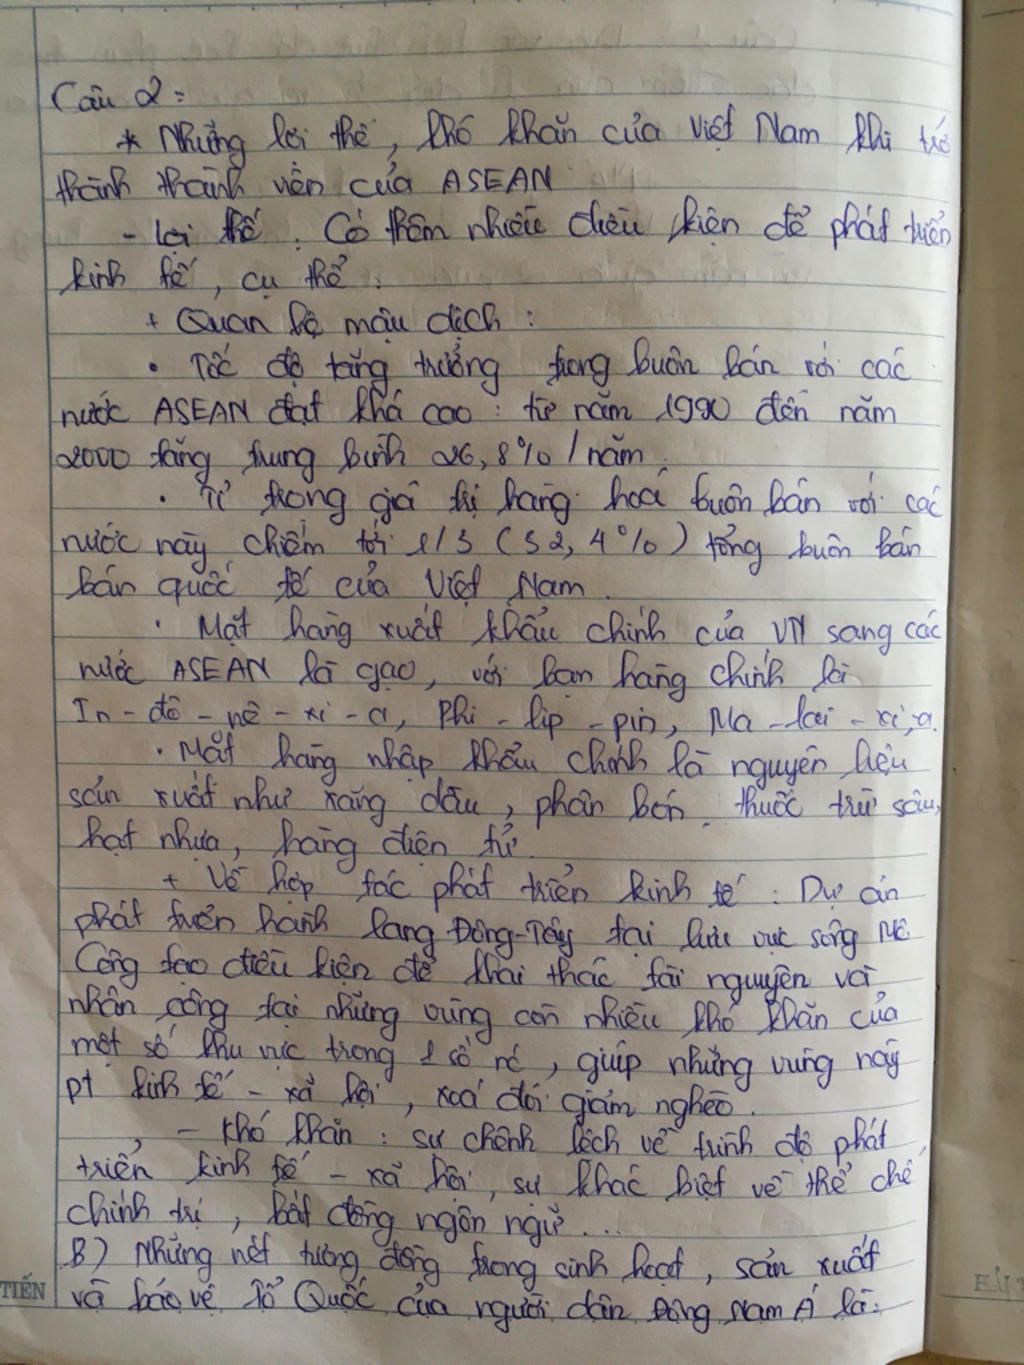 Câu 2:
* Những lợi thế, khó khăn của Việt Nam khi trở
thành thành viên của ASEAN
- Lợi thế: Có thêm nhiều điều kiện để phát triển
kinh tế, cụ thể:
+ Quan hệ mậu dịch:
• Tốc độ tăng trưởng trong buôn bán với các
nước ASEAN đạt khá cao: từ năm 1990 đến năm
2000 tăng trung bình 26,8%/năm.
• Tỉ trọng giá trị hàng hoá buôn bán với các
nước này chiếm tới 1/3 (32,4%) tổng buôn bán
bán quốc tế của Việt Nam.
• Mặt hàng xuất khẩu chính của VN sang các
nước ASEAN là gạo, với bạn hàng chính là
In-đô-nê-xi-a, Phi-lip-pin, Ma-lai-xi-a.
• Mặt hàng nhập khẩu chính là nguyên liệu
sản xuất như xăng dầu, phân bón, thuốc trừ sâu,
hạt nhựa, hàng điện tử.
+ Về hợp tác phát triển kinh tế: Dự án
phát triển hành lang Đông-Tây tại lưu vực sông Mê
Công tạo điều kiện để khai thác tài nguyên và
nhân công tại những vùng còn nhiều khó khăn của
một số khu vực trong 1 số nc, giúp những vùng này
pt kinh tế - xã hội, xoá đói giảm nghèo.
- Khó khăn: sự chênh lệch về trình độ phát
triển kinh tế - xã hội, sự khác biệt về thể chế
chính trị, bất đồng ngôn ngữ...
B) Những nét tương đồng trong sinh hoạt, sản xuất
và bảo vệ Tổ Quốc của người dân Đông Nam Á là:
TIẾN
HẢI T